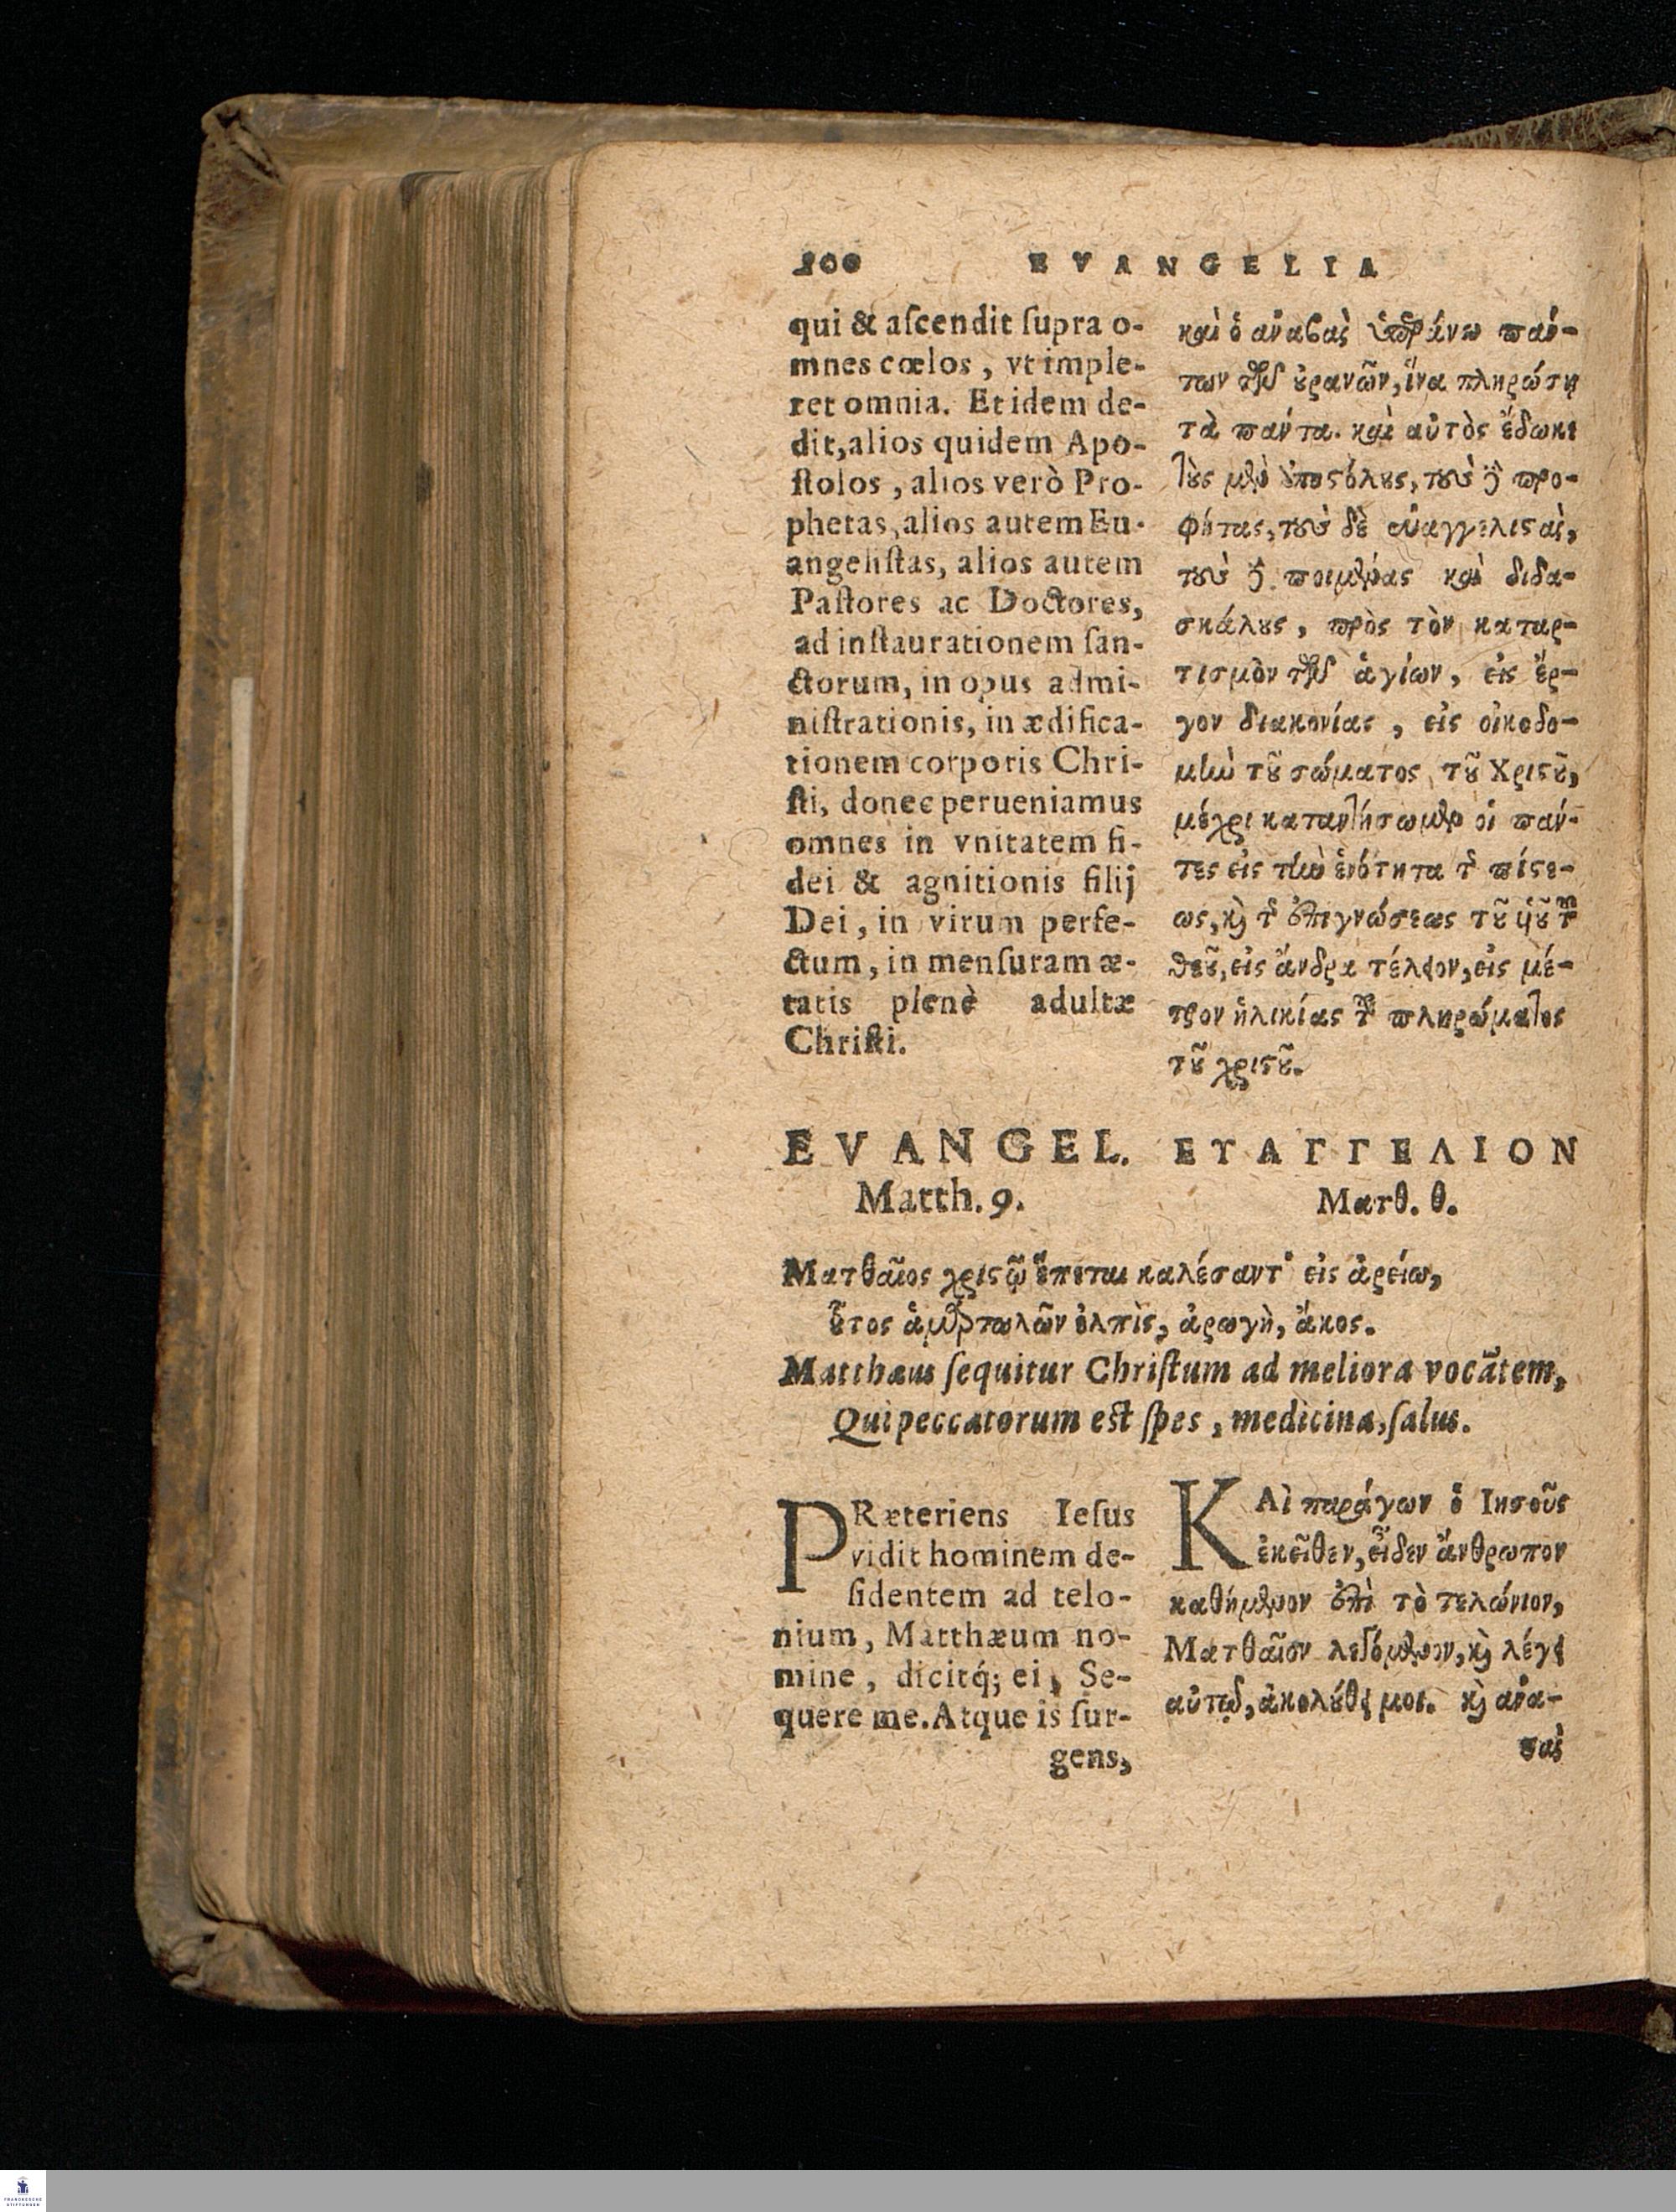 200 EVANGELIA
qui & aſcendit ſupra o-
mnes cœlos, vt imple-
ret omnia. Et idem de-
dit, alios quidem Apo-
ſtolos, alios verò Pro-
phetas, alios autem Eu-
angeliſtas, alios autem
Paſtores ac Doctores,
ad inſtaurationem ſan-
ctorum, in opus admi-
niſtrationis, in ædifica-
tionem corporis Chri-
ſti, donec perueniamus
omnes in vnitatem fi-
dei & agnitionis filij
Dei, in virum perfe-
ctum, in menſuram æ-
tatis plenè adultæ
Chriſti.
καὶ ὁ ἀναβὰς ὑπεράνω πάν-
των τῶν ȣ̓ρανῶν, ἵνα πληρώσῃ
τὰ πάντα. καὶ αὐτὸς ἔδωκε
τȣ̀ς μὲν ἀποϛόλȣς, τȣ̀ς δὲ προ-
φήτας, τȣ̀ς δὲ εὐαγγελιϛὰς,
τȣ̀ς δὲ ποιμένας καὶ διδα-
σκάλȣς, πρὸς τὸν καταρ-
τισμὸν τῶν ἁγίων, εἰς ἔρ-
γον διακονίας, εἰς οἰκοδο-
μὴν τȣ͂ σώματος τȣ͂ Χριϛȣ͂,
μέχρι καταντήσωμεν οἱ πάν-
τες εἰς τὴν ἑνότητα τῆς πίϛε-
ως, καὶ τῆς ἐπιγνώσεως τȣ͂ ὑȣ͂ τȣ͂
θεȣ͂, εἰς ἄνδρα τέλειον, εἰς μέ-
τρον ἡλικίας τȣ͂ πληρώματος
τȣ͂ χριϛȣ͂.
EVANGEL.
Matth. 9.
ΕΥΑΓΓΕΛΙΟΝ
Ματθ. θ.
Ματθαῖος χριϛῷ ἕπεται καλέσαντ' εἰς ἀρείω,
ȣ̔͂τος ἁμαρτωλῶν ἐλπὶς, ἀρωγὴ, ἄκος.
Matthæus ſequitur Chriſtum ad meliora vocãtem,
Qui peccatorum eſt ſpes, medicina, ſalus.
PRæteriens Ieſus
vidit hominem de-
ſidentem ad telo-
nium, Matthæum no-
mine, dicitq́; ei, Se-
quere me. Atque is ſur-
gens,
ΚΑὶ παράγων ὁ Ἰησοῦς
ἐκεῖθεν, εἶδεν ἄνθρωπον
καθήμενον ἐπὶ τὸ τελώνιον,
Ματθαῖον λεγόμενον, καὶ λέγει
αὐτῷ, ἀκολȣ́θει μοι. καὶ ἀνα-
ϛὰς
FRANCKESCHE
STIFTUNGEN